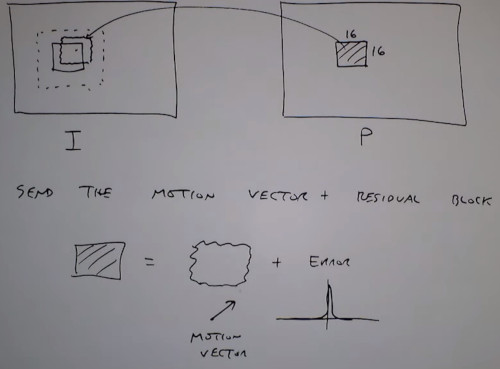 16
16
I
P
SEND THE MOTION VECTOR + RESIDUAL BLOCK
= + ERROR
MOTION
VECTOR